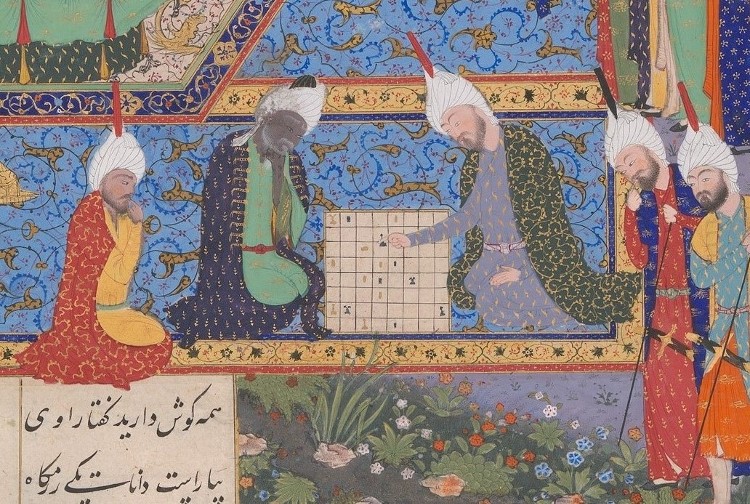 همه کوش دارید کفتار اوی
بیاراست دانا یکی رزمکاه